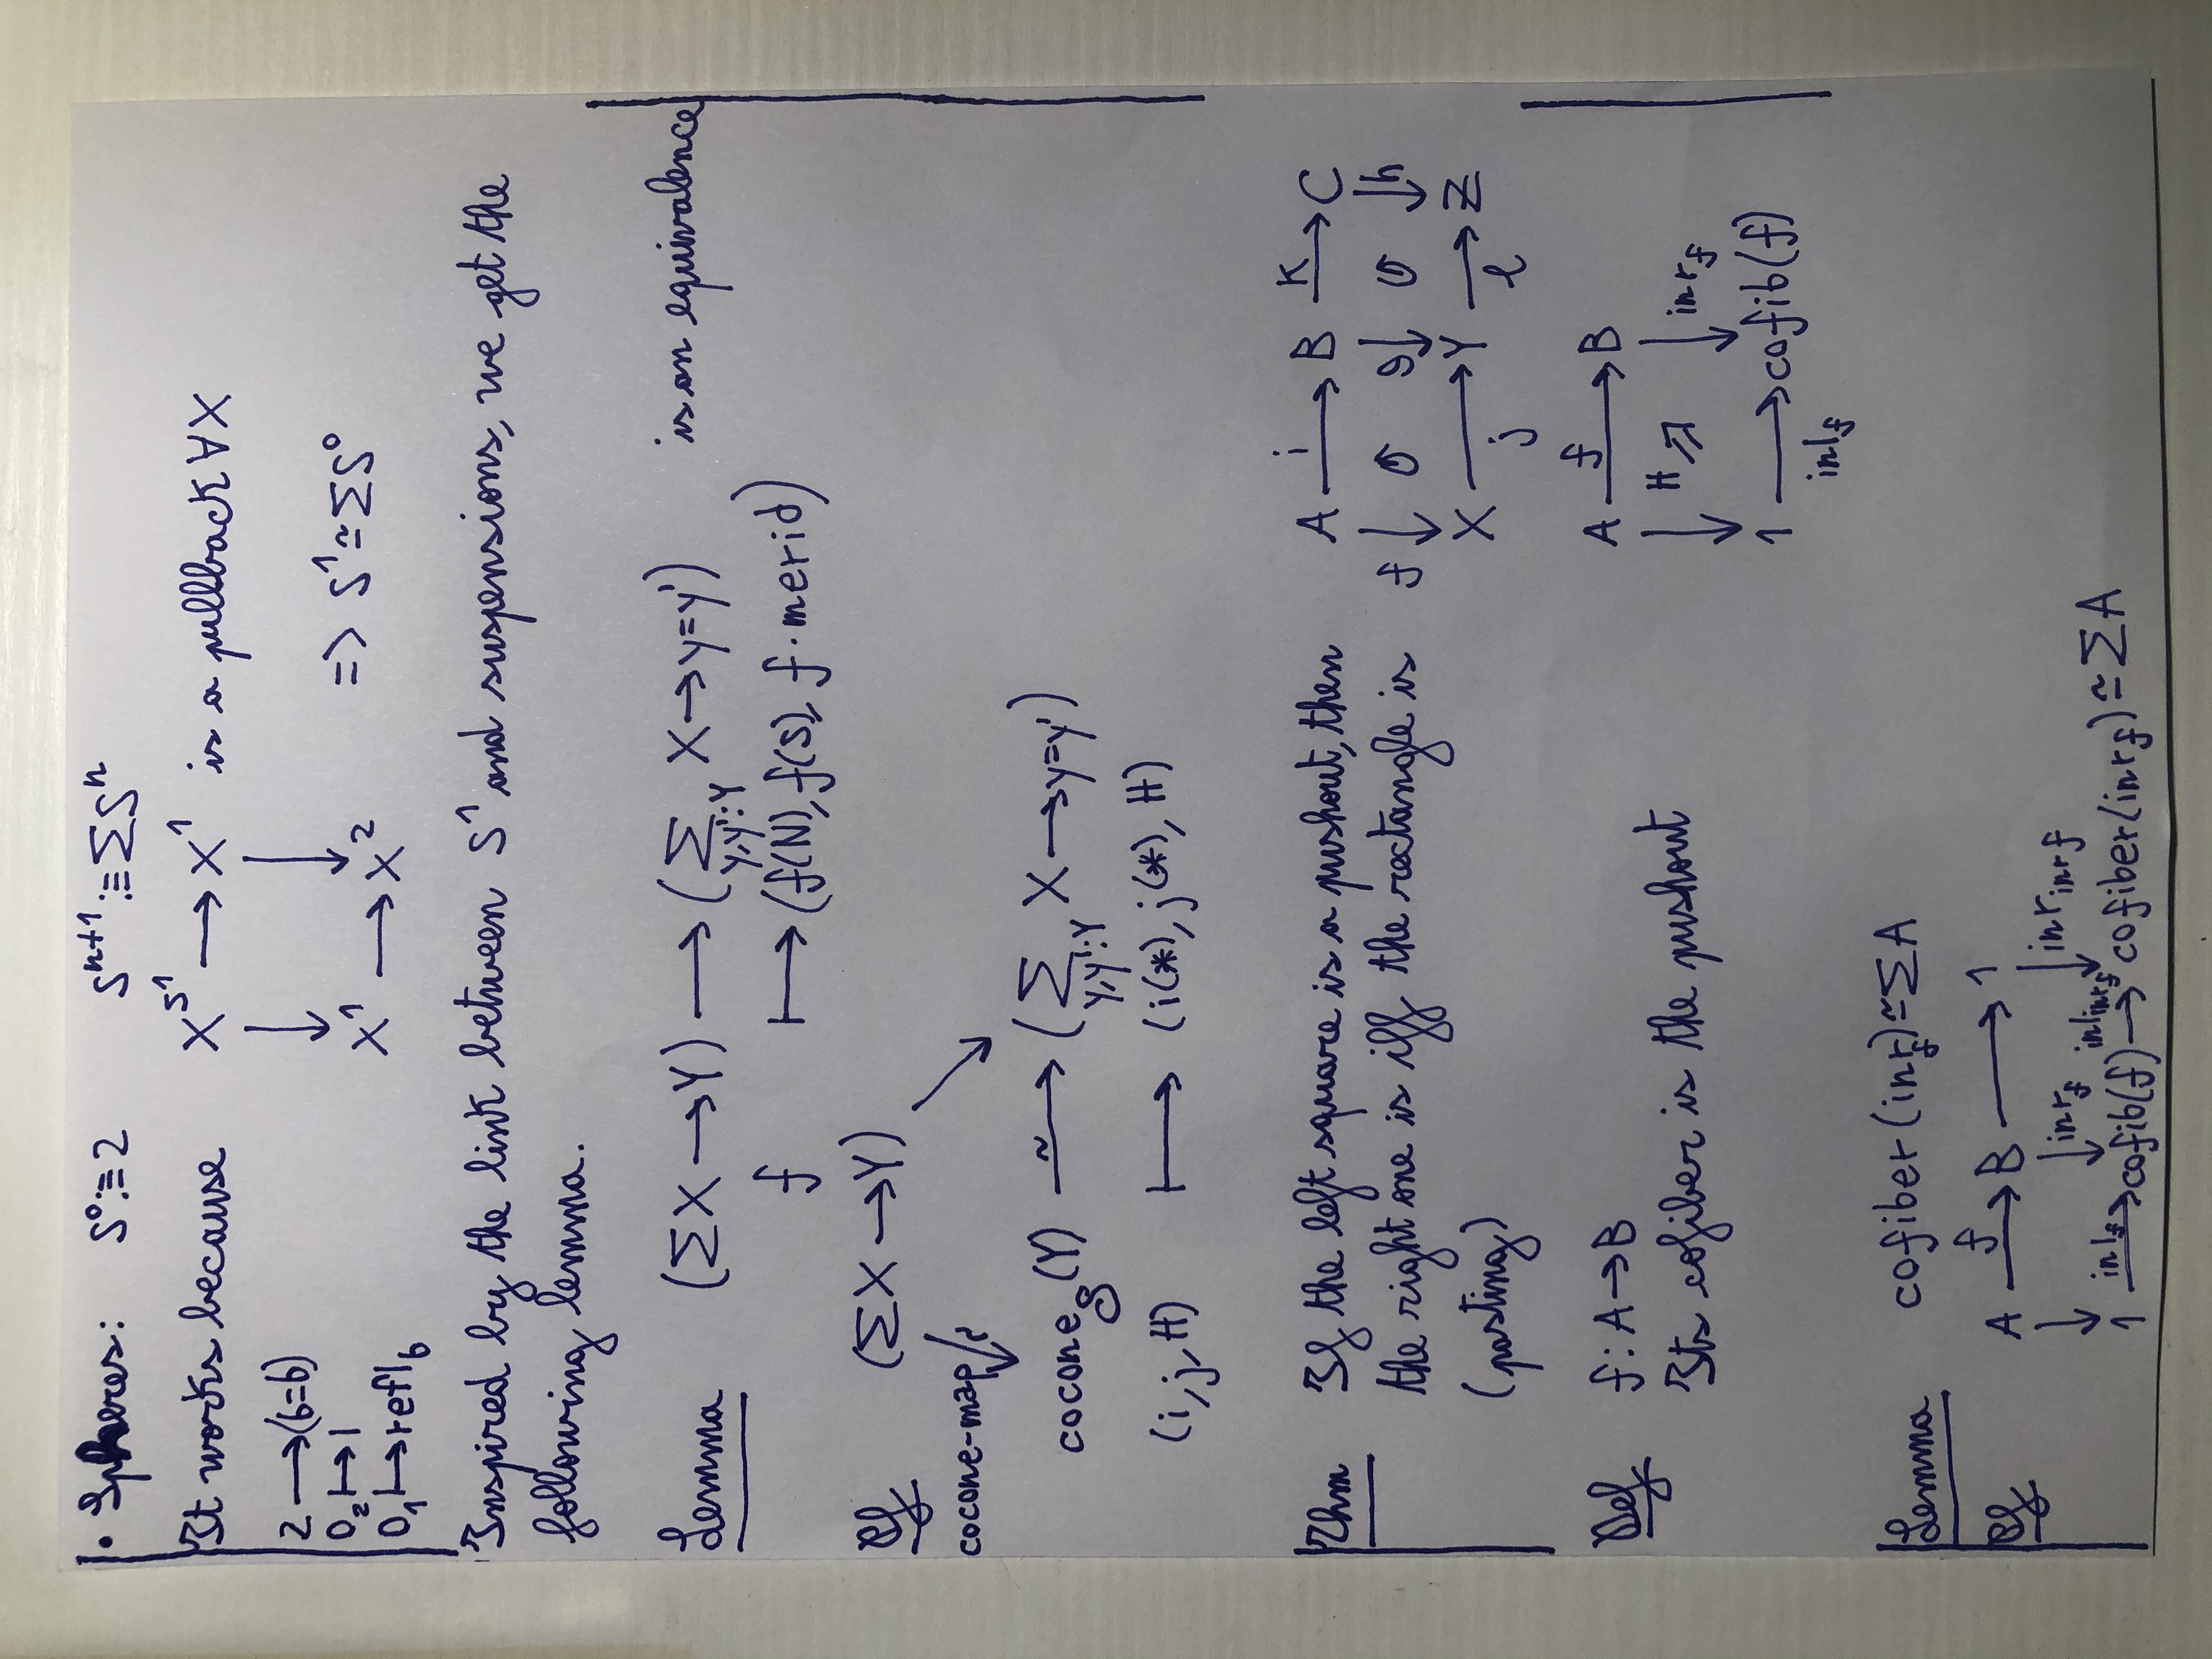 • Spheres: S⁰:≡2 Sⁿ⁺¹:≡ΣSⁿ
It works because X^{S¹} ⟶ X¹ is a pullback ∀X
2 ⟶ (b=b)
0₂ ↦ l
0₁ ↦ refl_b
↓ ↓
X¹ ⟶ X² => S¹≃ΣS⁰
Inspired by the link between S¹ and suspensions, we get the
following lemma.
Lemma (ΣX→Y) ⟶ (Σ_{y,y':Y} X→y=y') is an equivalence
f ⟼ (f(N), f(S), f·merid)
Pf (ΣX→Y)
cocone-map ↓≀ ↘
cocone_S(Y) ⥲ (Σ_{y,y':Y} X→y=y')
(i,j,H) ⟼ (i(*), j(*), H)
Thm If the left square is a pushout, then
the right one is iff the rectangle is
(pasting)
A –i→ B –k→ C
f↓ ↺ g↓ ↺ ↓h
X –j→ Y –l→ Z
Def f:A→B
Its cofiber is the pushout
A –f→ B
↓ H⇗ ↓ inr_f
1 ⟶ cofib(f)
inl_f
Lemma cofiber(inr_f)≃ΣA
Pf A –f→ B ⟶ 1
↓ ↓inr_f ↓inr_{inr_f}
1 –inl_f→ cofib(f) –inl_{inr_f}→ cofiber(inr_f)≃ΣA